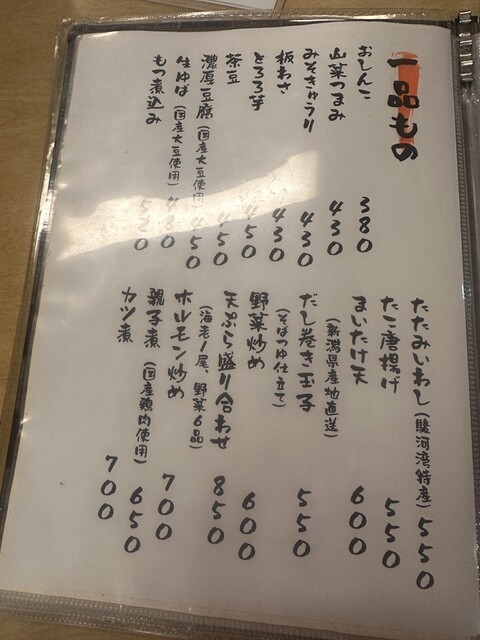 一品もの
おしんこ 380
山菜つまみ 430
みそきゅうり 430
板わさ 430
とろろ芋 450
茶豆 450
濃厚豆腐(国産大豆使用) 450
生ゆば(国産大豆使用) 480
もつ煮込み 550
たたみいわし(駿河湾特産) 550
たこ唐揚げ 550
まいたけ天 600
(新潟県産地直送)
だし巻き玉子 550
(そばつゆ仕立て)
野菜炒め 600
天ぷら盛り合わせ 850
(海老1尾、野菜6品)
ホルモン炒め 700
親子煮(国産鶏肉使用) 650
カツ煮 700